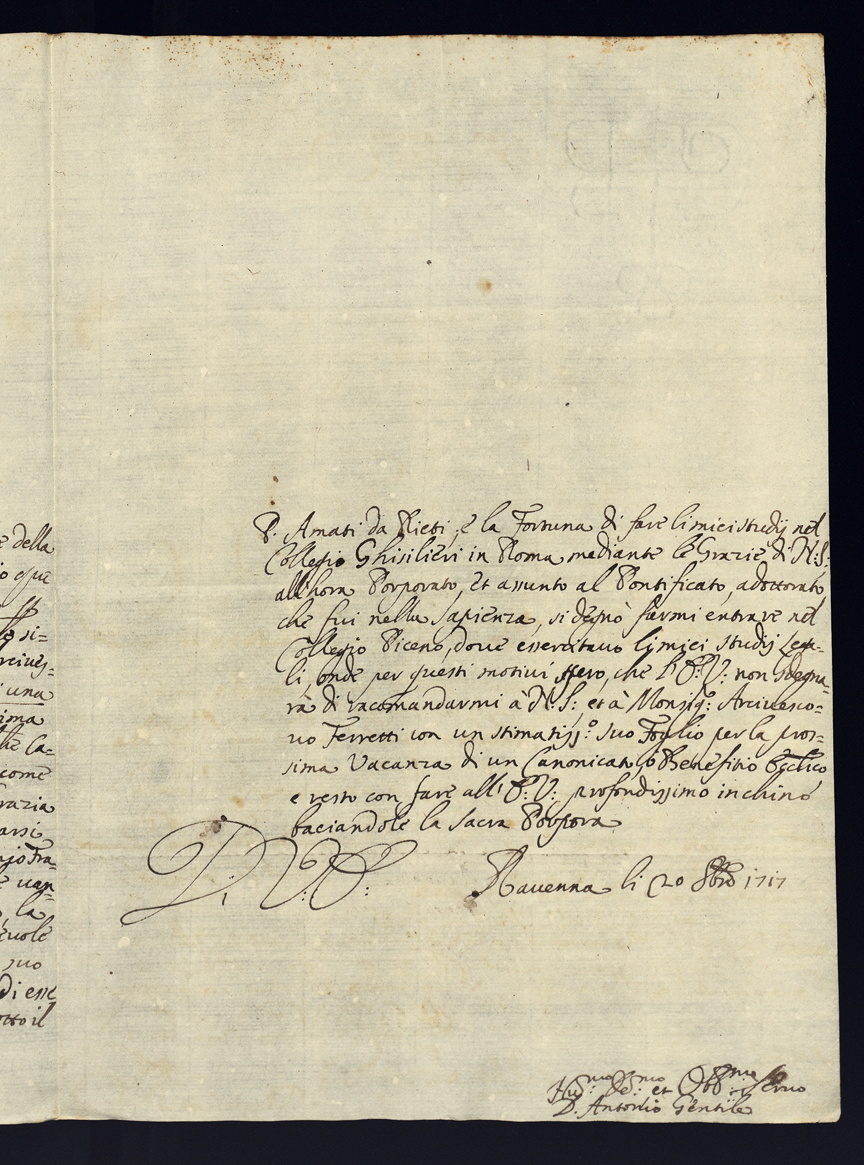 e della
o que
si=
rcives=
i una
ima
he Ca=
come
razia
arsi
e van=
, la
evole
suo
di esse
otto il
P. Amati da Rieti, e la Fortuna di fare li miei studij nel
Collegio Ghisilieri in Roma mediante le Grazie di N.S:
all'hora Porporato, et assunto al Pontificato, adottorato
che fui nella Sapienza, si degnò farmi entrare nel
Collegio Piceno, dove essercitavo li miei studij Lega=
li, onde per questi motivi spero, che l'E: V: non sdegna=
rà di racomandarmi à N.S: et à Monsig: Arcivesco=
vo Ferretti con un stimatiss:º suo Foglio per la pros=
sima Vacanza di un Canonicato, o Benefitio Ecclico
e resto con fare all' E: V: profondissimo inchino
baciandole la Sacra Porpora
D: V: E:
Ravenna li 20 8bre 1717
Hu:mo De:mo et Obb:mo Servo
D. Antonio Gentile